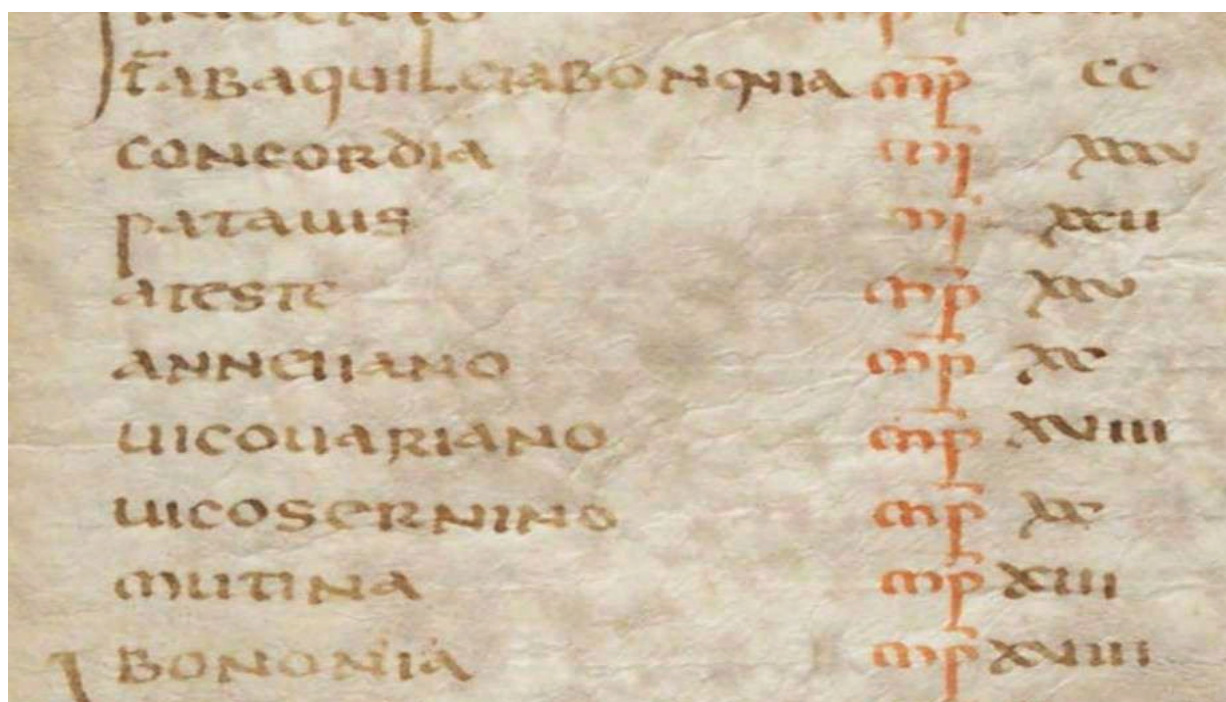 ITABAQUILEIABONONIA mp CC
CONCORDIA mp XXXI
PATAUIS mp XXII
ATESTE mp XXV
ANNEIIANO mp XX
UICOUARIANO mp XVIII
UICOSERNINO mp XX
MUTINA mp XIII
BONONIA mp XVIII